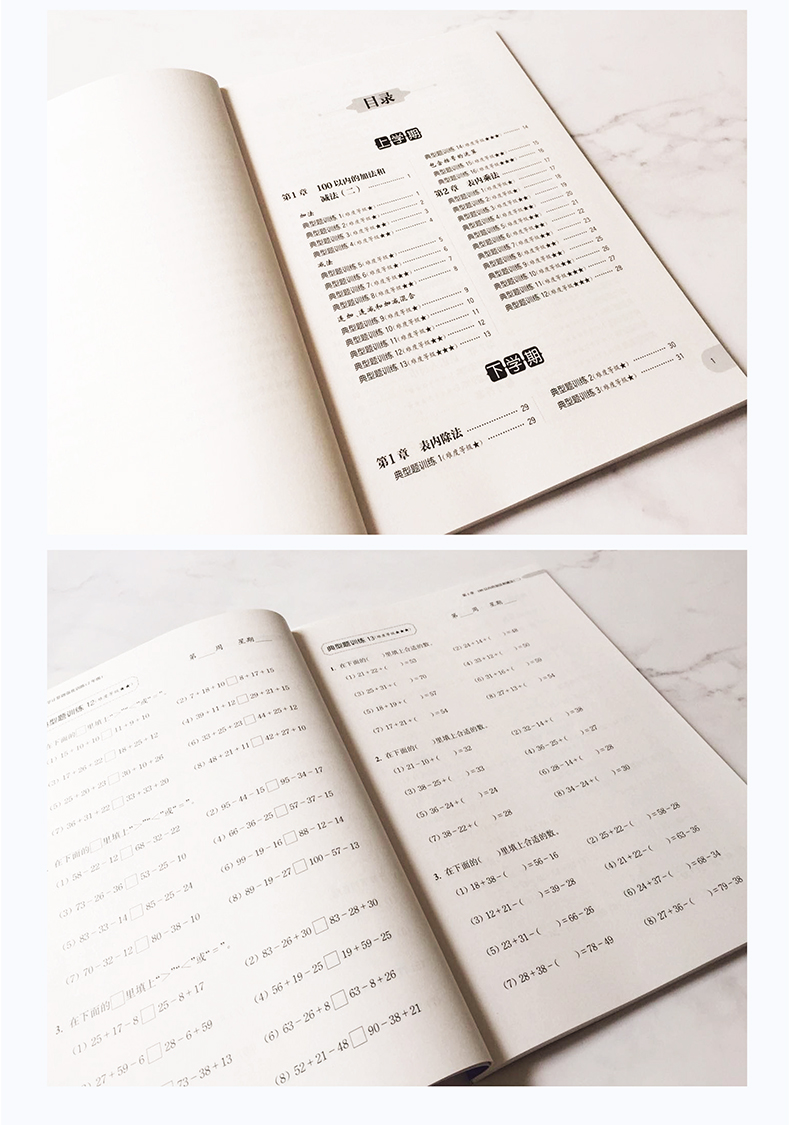 目录
上学期
第1章 100以内的加法和
减法（二） 1
加法 1
典型题训练 1（难度等级★） 2
典型题训练 2（难度等级★） 3
典型题训练 3（难度等级★★） 4
典型题训练 4（难度等级★★）
减法 5
典型题训练 5（难度等级★） 6
典型题训练 6（难度等级★） 7
典型题训练 7（难度等级★★） 8
典型题训练 8（难度等级★★）
连加、连减和加减混合 9
典型题训练 9（难度等级★） 10
典型题训练 10（难度等级★） 11
典型题训练 11（难度等级★★） 12
典型题训练 12（难度等级★★） 13
典型题训练 13（难度等级★★★）
典型题训练 14（难度等级★★★） 14
包含括号的运算 15
典型题训练 15（难度等级★★） 16
典型题训练 16（难度等级★★★） 17
第2章 表内乘法 17
典型题训练 1（难度等级★） 18
典型题训练 2（难度等级★） 19
典型题训练 3（难度等级★★） 20
典型题训练 4（难度等级★★） 21
典型题训练 5（难度等级★★） 22
典型题训练 6（难度等级★★） 23
典型题训练 7（难度等级★★） 24
典型题训练 8（难度等级★★） 25
典型题训练 9（难度等级★★） 26
典型题训练 10（难度等级★★） 27
典型题训练 11（难度等级★★★） 28
典型题训练 12（难度等级★★★）
下学期
第1章 表内除法 29
典型题训练 1（难度等级★） 29
典型题训练 2（难度等级★） 30
典型题训练 3（难度等级★） 31
1
第 周 星期
典型题训练 12（难度等级★★）
在下面的□里填上“>”“<”或“=”。
15+10+10□11+9+10
(2) 7+18+10□8+17+15
(3) 17+26+22□18+25+12
(4) 39+11+12□29+21+15
(5) 25+20+23□30+10+26
(6) 33+25+23□44+25+12
(7) 36+31+22□33+33+20
(8) 48+21+11□42+27+10
在下面的□里填上“>”“<”或“=”。
(1) 58-22-12□68-32-22
(2) 95-44-15□95-34-17
(3) 73-26-36□53-25-10
(4) 66-36-25□57-37-15
(5) 83-33-14□85-25-24
(6) 99-19-16□88-12-14
(7) 70-32-12□80-38-10
(8) 89-19-27□100-57-13
3. 在下面的□里填上“>”“<”或“=”。
(1) 25+17-8□25-8+17
(2) 83-26+30□83-28+30
27+59-6□28-6+59
(4) 56+19-25□19+59-25
□73-38+13
(6) 63-26+8□63-8+26
(8) 52+21-48□90-38+21
第 周 星期
典型题训练 13（难度等级★★★）
1. 在下面的( )里填上合适的数。
(1) 21+22+( )=53
(2) 24+14+( )=48
(3) 25+31+( )=70
(4) 33+12+( )=50
(5) 18+19+( )=57
(6) 31+16+( )=59
(7) 17+21+( )=54
(8) 27+13+( )=54
2. 在下面的( )里填上合适的数。
(1) 21-10+( )=32
(2) 32-14+( )=38
(3) 38-25+( )=33
(4) 36-25+( )=27
(5) 36-24+( )=24
(6) 28-14+( )=28
(7) 38-22+( )=28
(8) 34-24+( )=30
3. 在下面的( )里填上合适的数。
(1) 18+38-( )=56-16
(2) 25+22-( )=58-28
(3) 12+21-( )=39-28
(4) 21+22-( )=63-36
(5) 23+31-( )=66-26
(6) 24+37-( )=68-34
(7) 28+38-( )=78-49
(8) 27+36-( )=79-38